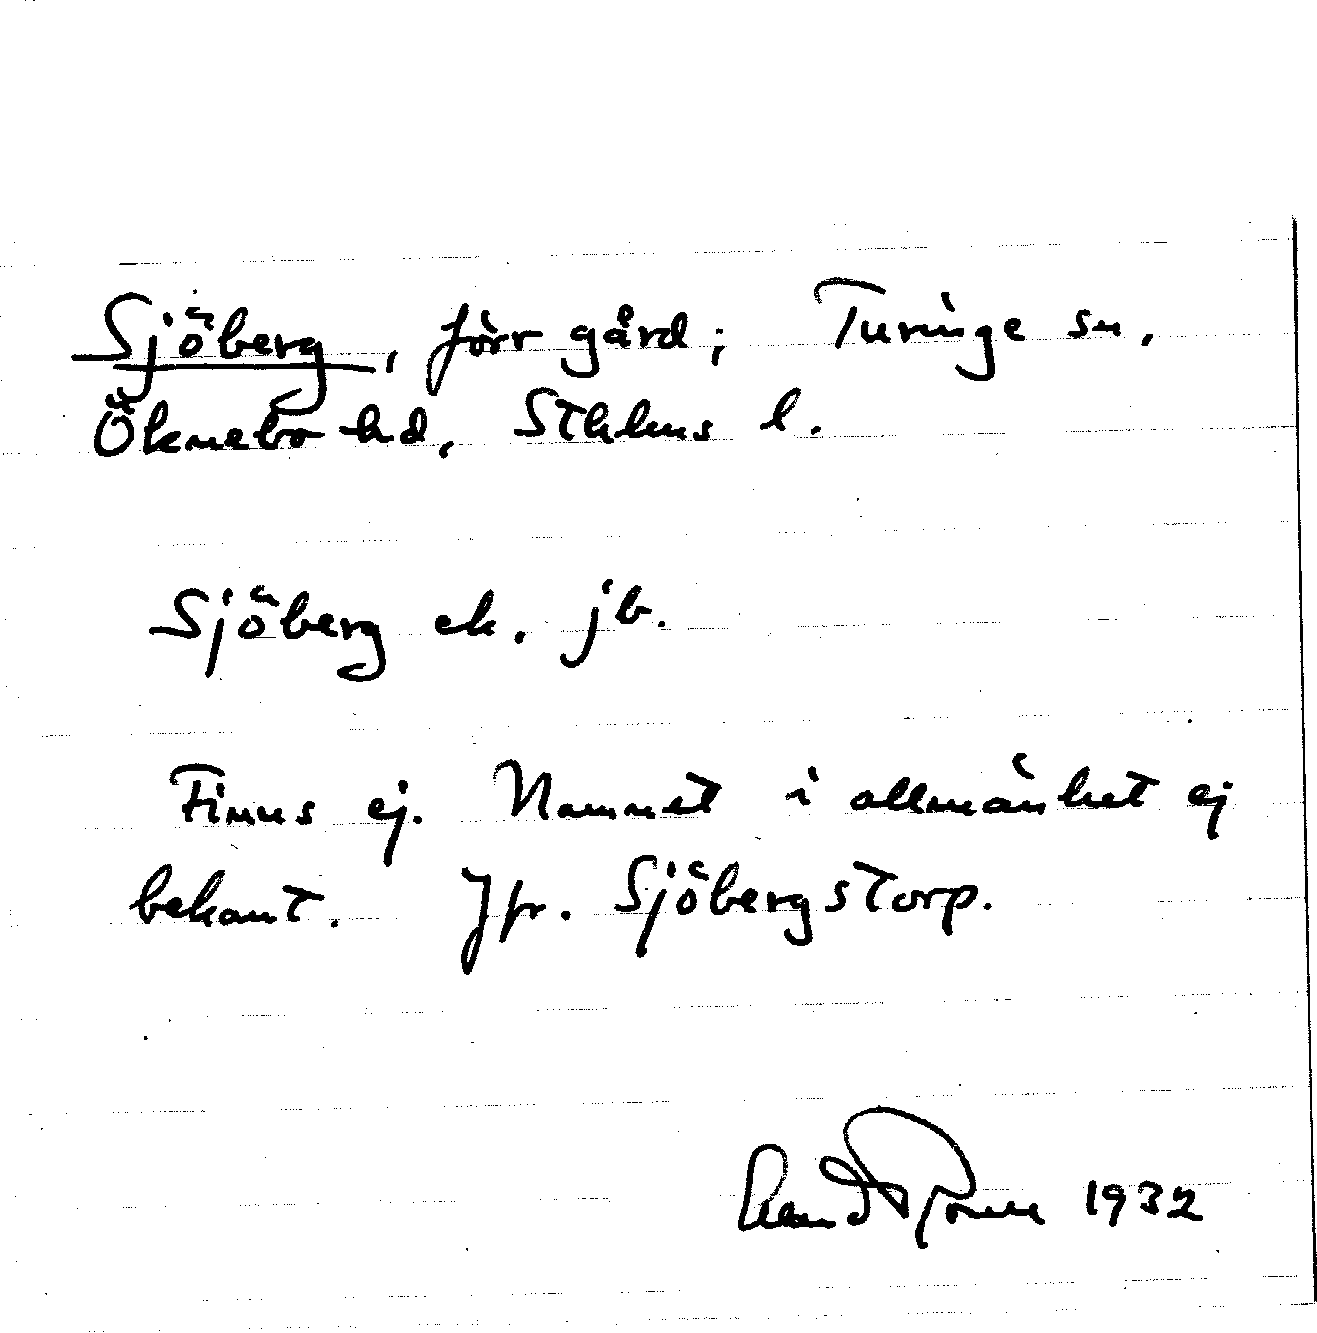 Sjöberg, förr gård; Turinge sn,
Öknebo hd, Sthlms l.
Sjöberg ek. jb.
Finns ej. Namnet i allmänhet ej
bekant. Jfr. Sjöbergstorp.
1932